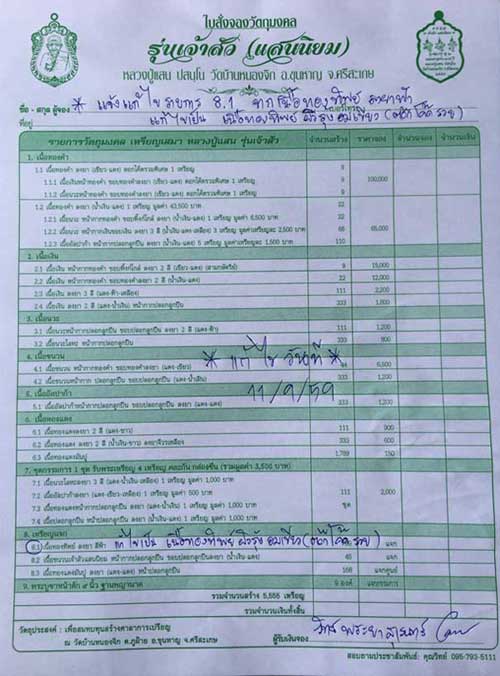 ใบสั่งจองวัตถุมงคล
รุ่นเจ้าสัว (แสนนิยม)
หลวงปู่แสน ปสนฺโน วัดบ้านหนองจิก อ.ขุนหาญ จ.ศรีสะเกษ
ชื่อ - สกุล ผู้จอง * แจ้งแก้ไขรายการ 8.1 จากเนื้อทองทิพย์ ลงยาฟ้า
ที่อยู่ แก้ไขเป็น เนื้อทองทิพย์ ผิวรุ้ง อมเขียว (ตอกโค้ด รวย)
เบอร์โทร
รายการวัตถุมงคล เหรียญเสมา หลวงปู่แสน รุ่นเจ้าสัว จำนวนสร้าง ราคาจอง จำนวนจอง จำนวนเงิน
1. เนื้อทองคำ
1.1 เนื้อทองคำ ลงยา (เขียว-แดง) ตอกโค้ดรวมพิเศษ 1 เหรียญ 9
1.1.1 เนื้อเงินหน้าทองคำ ขอบทองคำลงยา (เขียว-แดง) ตอกโค้ดรวมพิเศษ 1 เหรียญ 9 100,000
1.1.2 เนื้อนวะหน้ากากทองคำ ตอกโค้ดรวมพิเศษ 1 เหรียญ 9
1.2 เนื้อทองคำ ลงยา (น้ำเงิน-แดง) 1 เหรียญ มูลค่า 43,500 บาท 22
1.2.1 เนื้อนวะ หน้ากากทองคำ ขอบพิ้งก์โกล์ ลงยา (น้ำเงิน-แดง) 1 เหรียญ มูลค่า 6,500 บาท 22
1.2.2 เนื้อนวะ หน้ากากเงินขอบเงิน ลงยา 3 สี (น้ำเงิน-แดง-เหลือง) 3 เหรียญ มูลค่าเหรียญละ 2,500 บาท 66 65,000
1.2.3 เนื้ออัลปาก้า หน้ากากปลอกลูกปืน ลงยา (น้ำเงิน-แดง) 5 เหรียญ มูลค่าเหรียญละ 1,500 บาท 110
2. เนื้อเงิน
2.1 เนื้อเงิน หน้ากากทองคำ ขอบพิ้งก์โกล์ ลงยา 2 สี (เขียว-แดง) (สามกษัตริย์) 9 15,000
2.2 เนื้อเงิน หน้ากากทองคำ ขอบทองคำลงยา 2 สี (น้ำเงิน-แดง) 22 12,000
2.3 เนื้อเงิน ลงยา 3 สี (แดง-ฟ้า-เหลือง) 111 2,200
2.4 เนื้อเงิน ลงยา 2 สี (แดง-น้ำเงิน) หน้ากากปลอกลูกปืน 333 1,800
3. เนื้อนวะ
3.1 เนื้อนวะหน้ากากปลอกลูกปืน ขอบปลอกลูกปืน ลงยา 2 สี (แดง-ฟ้า) 111 1,200
3.2 เนื้อนวะโลหะ หน้ากากปลอกลูกปืน 333 800
4. เนื้อชนวน
4.1 เนื้อชนวน หน้ากากทองคำ ขอบทองคำลงยา (แดง-เขียว) 44 6,500
4.2 เนื้อชนวน หน้ากาก ปลอกลูกปืน ขอบปลอกลูกปืน (แดง-น้ำเงิน) 333 1,200
* แก้ไข วันที่ *
11/9/59
5. เนื้ออัลปาก้า
5.1 เนื้ออัลปาก้าหน้ากากปลอกลูกปืน ขอบปลอกลูกปืน ลงยา (แดง-น้ำเงิน) 333 1,200
6. เนื้อทองแดง
6.1 เนื้อทองแดงลงยา 2 สี (แดง-ขาว) 111 900
6.2 เนื้อทองแดง ลงยา 2 สี (น้ำเงิน-ขาว) ลงยาจีวรเหลือง 333 600
6.3 เนื้อทองแดงมันปู 1,789 150
7. ชุดกรรมการ 1 ชุด รับพระเหรียญ 4 เหรียญ คละกัน กล่องชิ้น (รวมมูลค่า 3,500 บาท)
7.1 เนื้อนวะโลหะลงยา 3 สี 1 เหรียญ มูลค่า 1,000 บาท
7.2 เนื้ออัลปาก้าลงยา (แดง-เขียว-เหลือง) 1 เหรียญ มูลค่า 500 บาท 111 2,000
7.3 เนื้อทองแดงหน้ากากทองแดงลงยา (แดง-น้ำเงิน) 1 เหรียญ มูลค่า 1,000 บาท ชุด
7.4 เนื้อปลอกลูกปืน ลงยา (น้ำเงิน-แดง) 1 เหรียญ มูลค่า 1,000 บาท
8. เหรียญแจก
8.1 เนื้อทองทิพย์ ลงยา สีฟ้า แก้ไขเป็น เนื้อทองทิพย์ ผิวรุ้ง อมเขียว (ตอกโค้ด รวย)
8.2 เนื้อชนวนเจ้าสัวแสนนิยม หน้ากากปลอกลูกปืน ขอบปลอกลูกปืนลงยา (น้ำเงิน-แดง) 65 แจก
8.3 เนื้อทองแดงมันปู ลงยา (แดง-แดง) หน้าปลอกลูกปืน 168 แจกศูนย์
9. พระบูชาหน้าตัก ๙ นิ้ว ฐานพญานาค 9 องค์ แจกกรรมการ
รวมจำนวนสร้าง 5,555 เหรียญ
รวมจำนวนเงินทั้งสิ้น
วัตถุประสงค์ : เพื่อสมทบทุนสร้างศาลาการเปรียญ
ณ วัดบ้านหนองจิก ต.ภูฝ้าย อ.ขุนหาญ จ.ศรีสะเกษ
ผู้รับเงินจอง
สอบถามประชาสัมพันธ์: คุณวิทย์ 095-793-5111